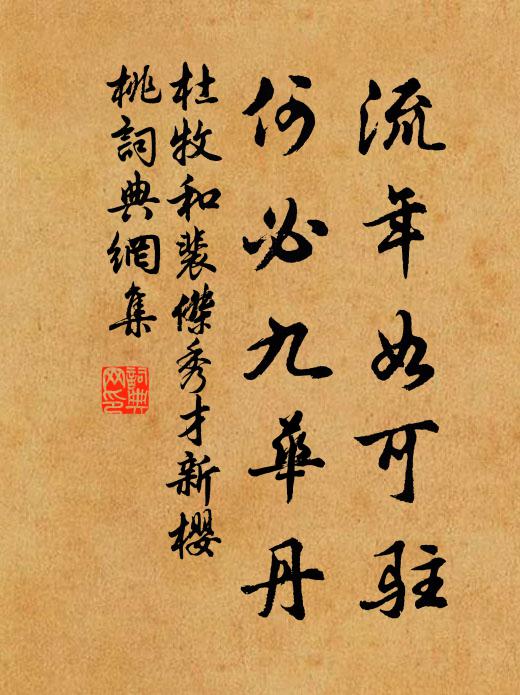 流年如可駐
何必九華丹
杜牧和裴傑秀才新櫻
桃詞典網集
詞典
网印